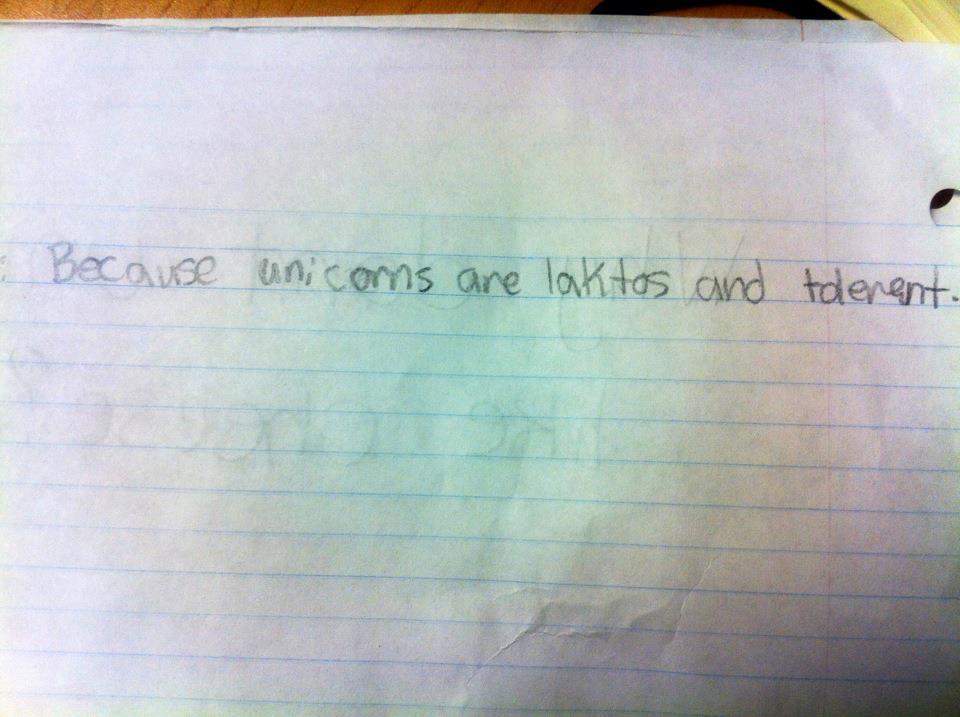 : Because unicorns are laktos and tolerent.